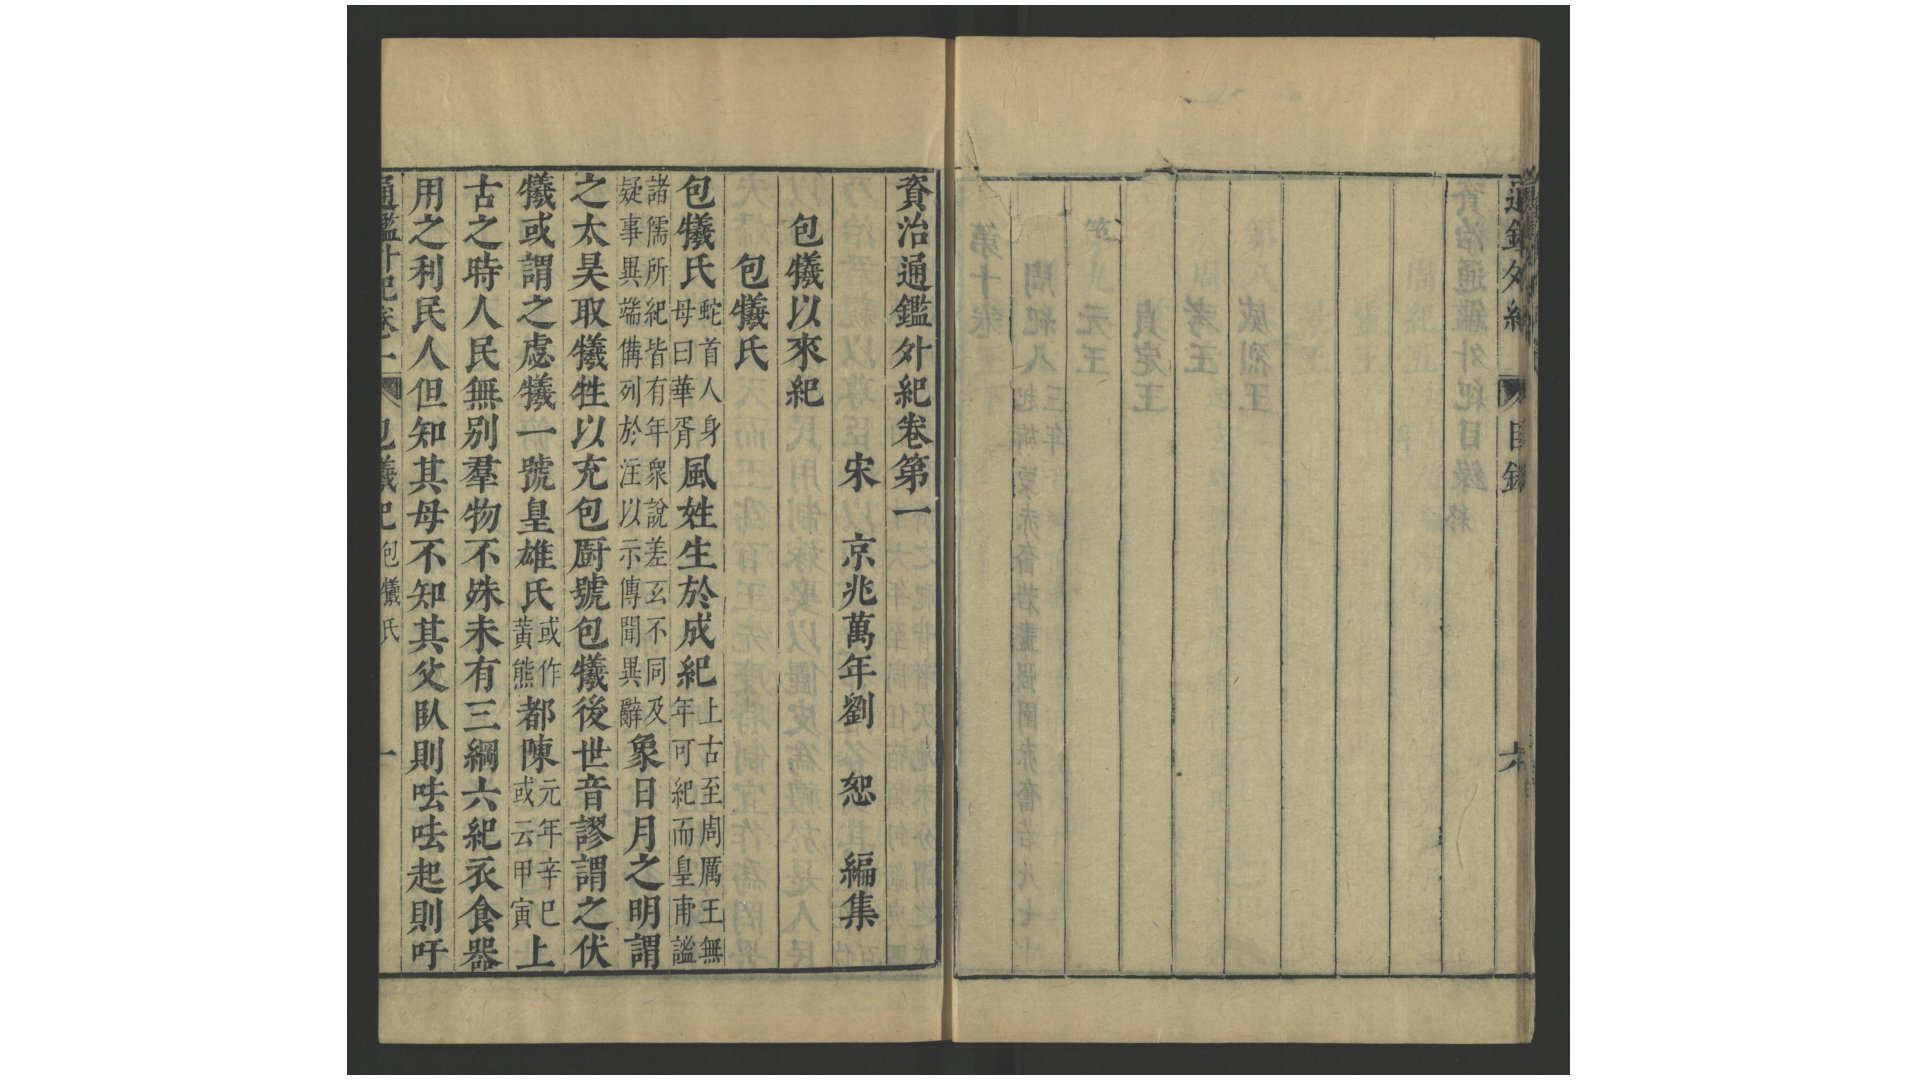 通鑑外紀
目錄
六
資治通鑑外紀卷第一
宋 京兆萬年劉 恕 編集
包犧以來紀
包犧氏
包犧氏蛇首人身母曰華胥風姓生於成紀上古至周厲王無年可紀而皇甫謐
諸儒所紀皆有年衆說差玄不同及疑事異端備列於注以示傳聞異辭象日月之明謂
之太昊取犧牲以充包厨號包犧後世音謬謂之伏
犧或謂之虙犧一號皇雄氏或作黃熊都陳元年辛巳或云甲寅上
古之時人民無别羣物不殊未有三綱六紀衣食器
用之利民人但知其母不知其父臥則呿呿起則吁
通鑑外紀卷一 包犧紀 包犧氏 一